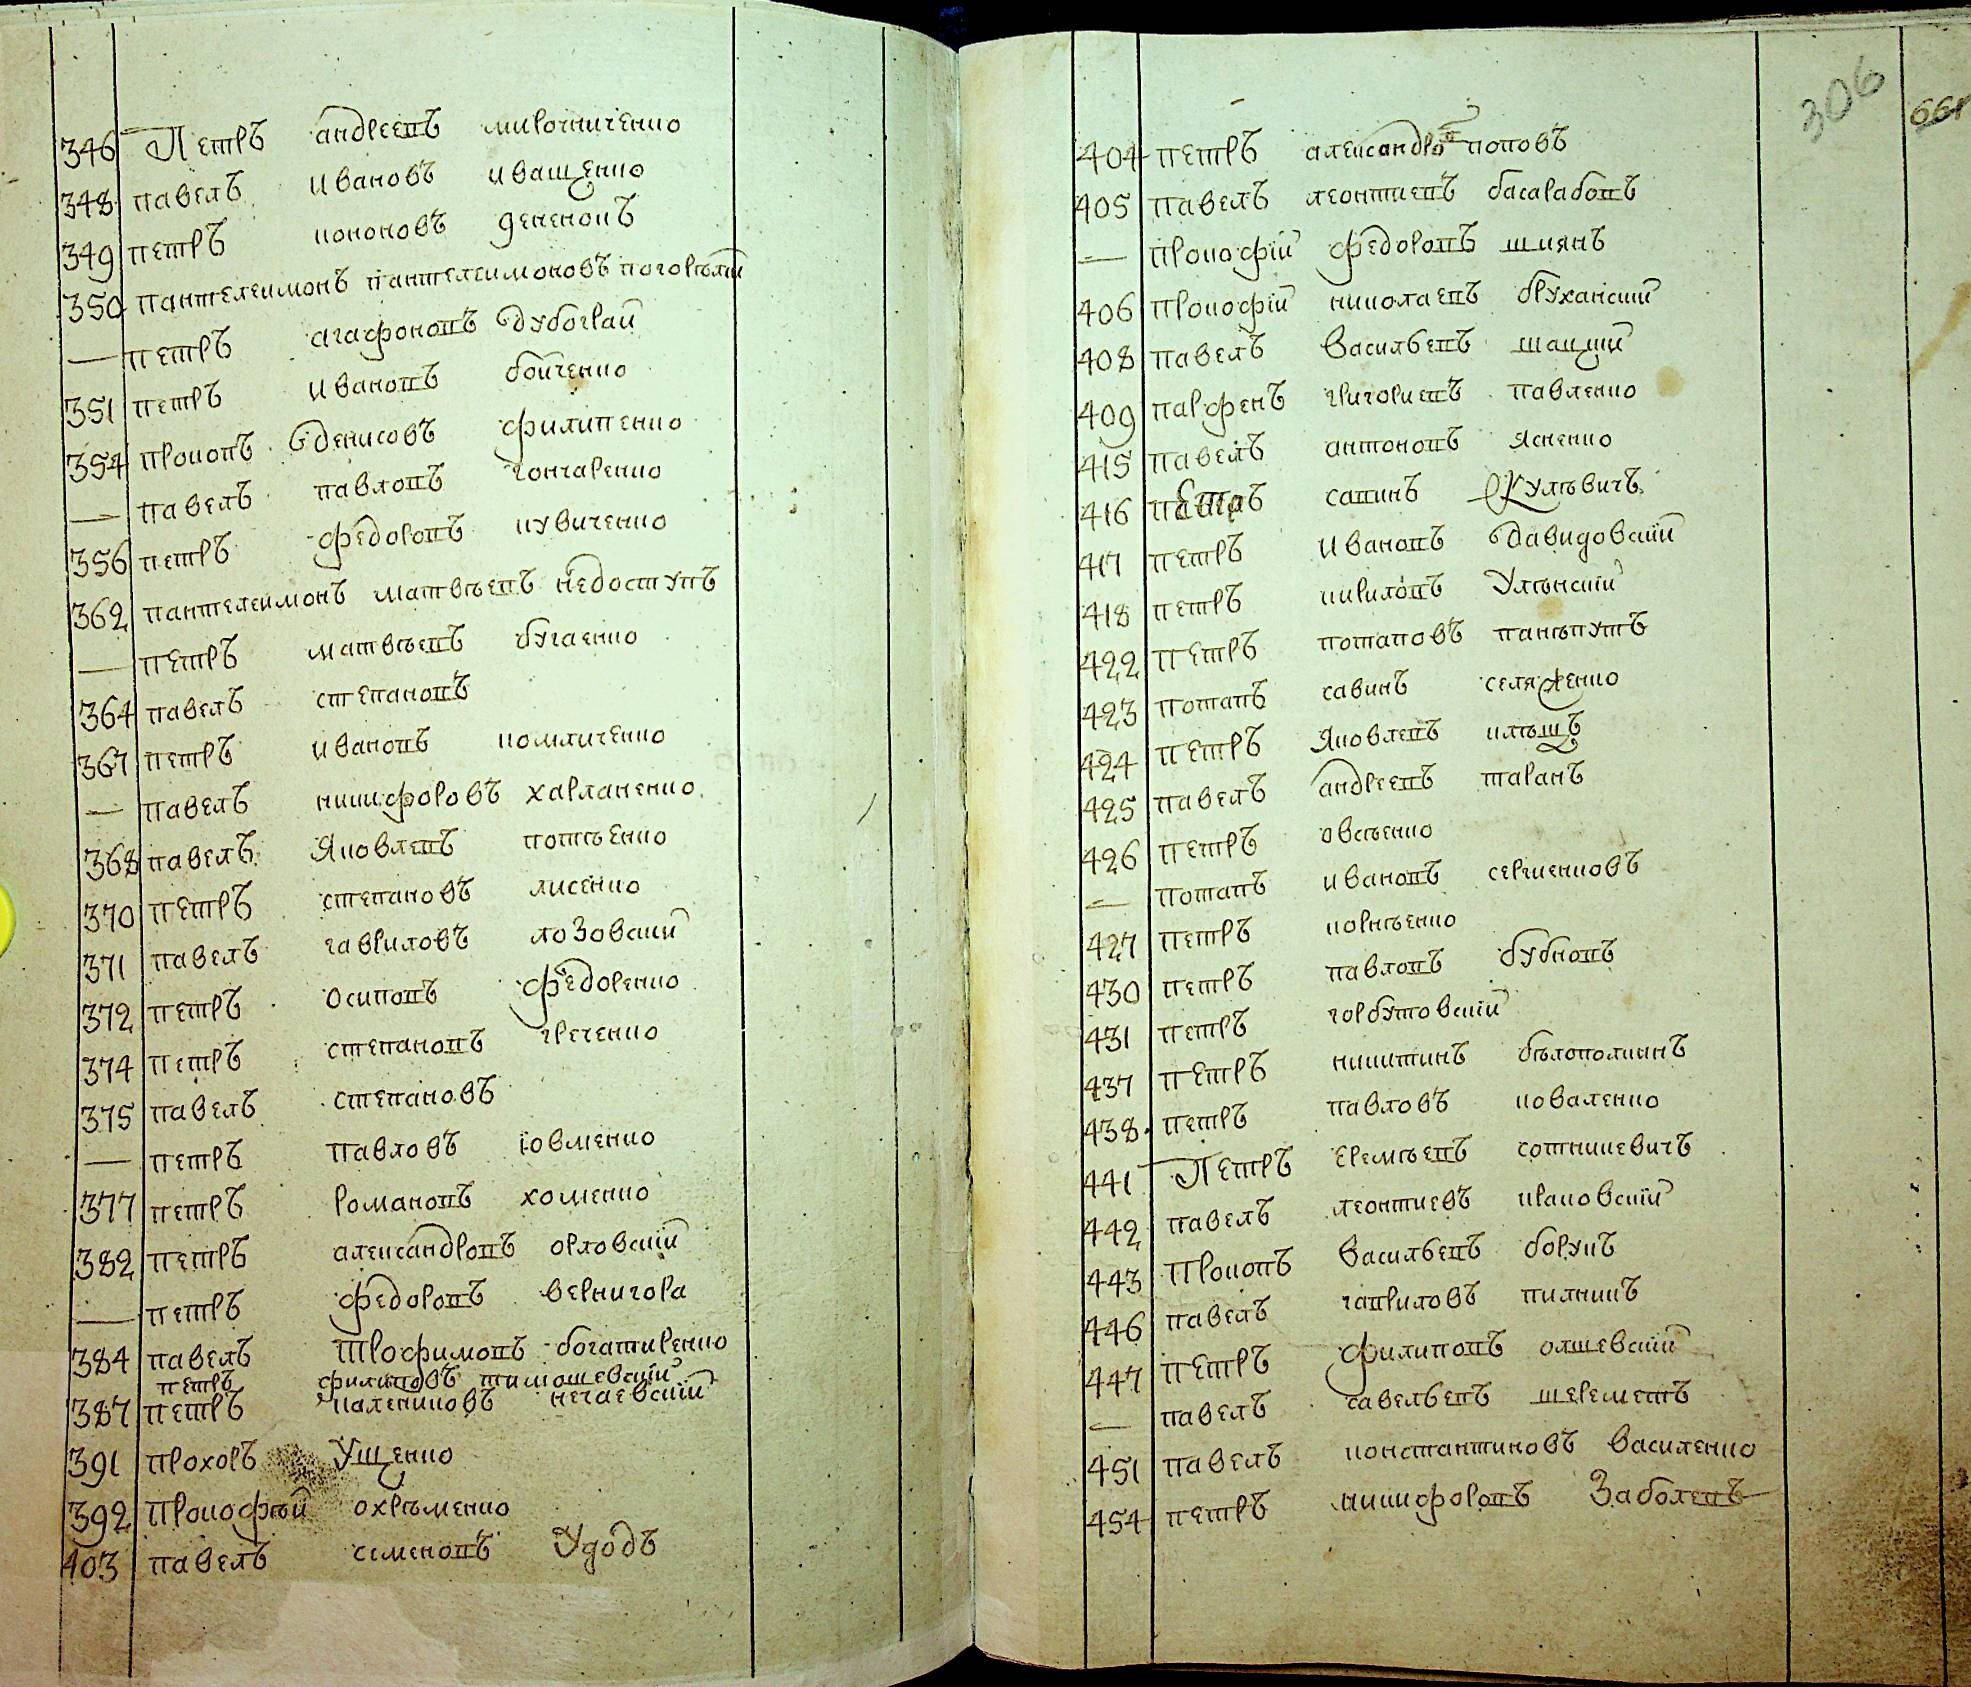 346 Петръ андреевъ мирочниченко
348 павелъ Ивановъ иващенко
349 петръ кононовъ деменокъ
350 пантелеимонъ пантелеимоновъ погорѣлій
— петръ агафоновъ дубограй
351 петръ Ивановъ бойченко
354 прокопъ денисовъ филипенко
— павелъ павловъ гончаренко
356 петръ федоровъ кувиченко
362 пантелеимонъ матвѣевъ недоступъ
— петръ матвѣевъ бугаенко
364 павелъ степановъ
367 петръ ивановъ комличенко
— павелъ никифоровъ харламенко
368 павелъ Яковлевъ потѣенко
370 петръ степановъ лисенко
371 павелъ гавриловъ лозовскии
372 петръ осиповъ федоренко
374 петръ степановъ греченко
375 павелъ степановъ
— петръ павловъ іовменко
377 петръ романовъ хоменко
382 петръ александровъ орловскій
— петръ федоровъ вернигора
384 павелъ трофимовъ богатиренко
петръ филиповъ тимошевскій
387 петръ калениковъ нечаевскій
391 прохоръ Ущенко
392 Прокофѣй охрѣменко
403 павелъ семеновъ Удодъ
306
661
404 петръ александровъ поповъ
405 павелъ леонтиевъ басарабовъ
— прокофій федоровъ шкянъ
406 прокофій николаевъ брухакскій
408 павелъ Васильевъ шацкій
409 парфенъ григориевъ павленко
415 павелъ антоновъ Ясненко
416 петръ савинъ Кулѣвичъ
417 петръ Ивановъ давидовскій
418 петръ кириловъ Улѣнскій
422 петръ потаповъ панѣпутъ
423 потапъ савинъ селяженко
424 петръ Яковлевъ клѣщъ
425 павелъ андреевъ таранъ
426 петръ овсѣенко
— потапъ ивановъ сергиенковъ
427 петръ корнѣенко
430 петръ павловъ бубновъ
431 петръ горбутовскій
437 петръ никитинъ бѣлополкинъ
438 петръ павловъ коваленко
441 Петръ Еремѣевъ сотникевичъ
442 павелъ леонтиевъ краковскій
443 Прокопъ Васильевъ борукъ
446 павелъ гавриловъ пилникъ
447 петръ филиповъ олшевскій
— павелъ савельевъ шереметъ
451 павелъ константиновъ Василенко
454 петръ никифоровъ Заболевъ